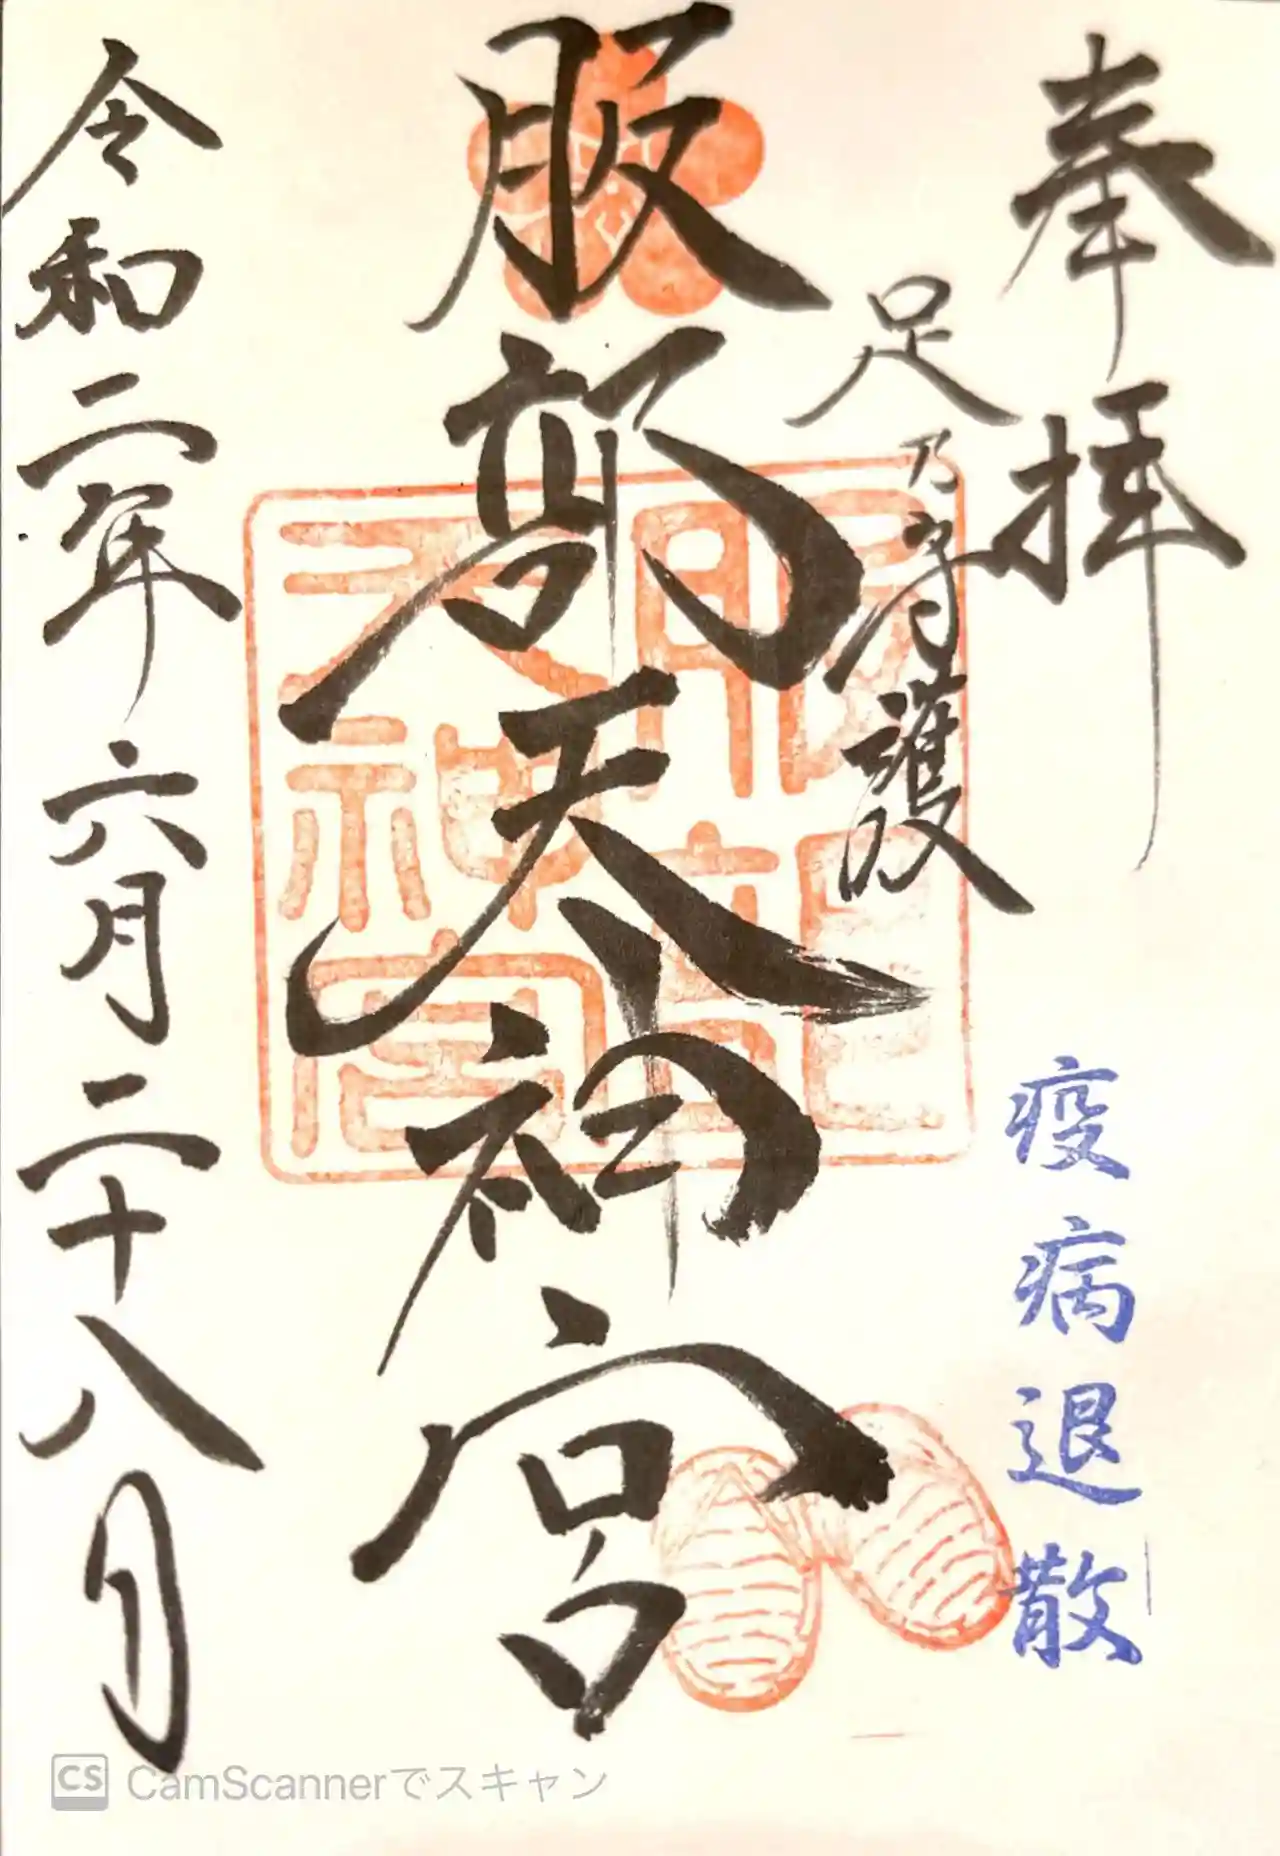 奉拝
足乃守護
疫病退散
服部天神宮
服部天神宮
令和二年六月二十八日
CS CamScannerでスキャン